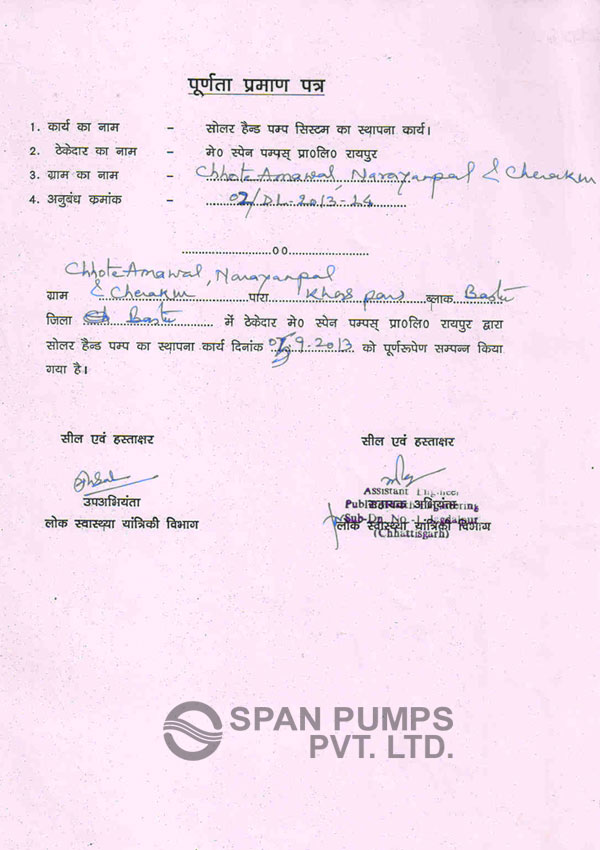 पूर्णता प्रमाण पत्र
1. कार्य का नाम - सोलर हैन्ड पम्प सिस्टम का स्थापना कार्य।
2. ठेकेदार का नाम - मे० स्पेन पम्पस् प्रा०लि० रायपुर
3. ग्राम का नाम - Chhote Amawal, Narayanpal & Cherakur
4. अनुबंध क्रमांक - 02/DL-2013-14
..................00..................
Chhote Amawal, Narayanpal
ग्राम & Cherakur पारा Khas para ब्लाक Bastr
जिला Bastr में ठेकेदार मे० स्पेन पम्पस् प्रा०लि० रायपुर द्वारा
सोलर हैन्ड पम्प का स्थापना कार्य दिनांक 9-2013 को पूर्णरूपेण सम्पन्न किया
गया है।
सील एवं हस्ताक्षर सील एवं हस्ताक्षर
उपअभियंता
लोक स्वास्थ्या यांत्रिकी विभाग
Assistant Engineer
सहायक अभियंता
Sub-Dn. No.-1 Jagdalpur
लोक स्वास्थ्या यांत्रिकी विभाग
(Chhattisgarh)
SPAN PUMPS
PVT. LTD.